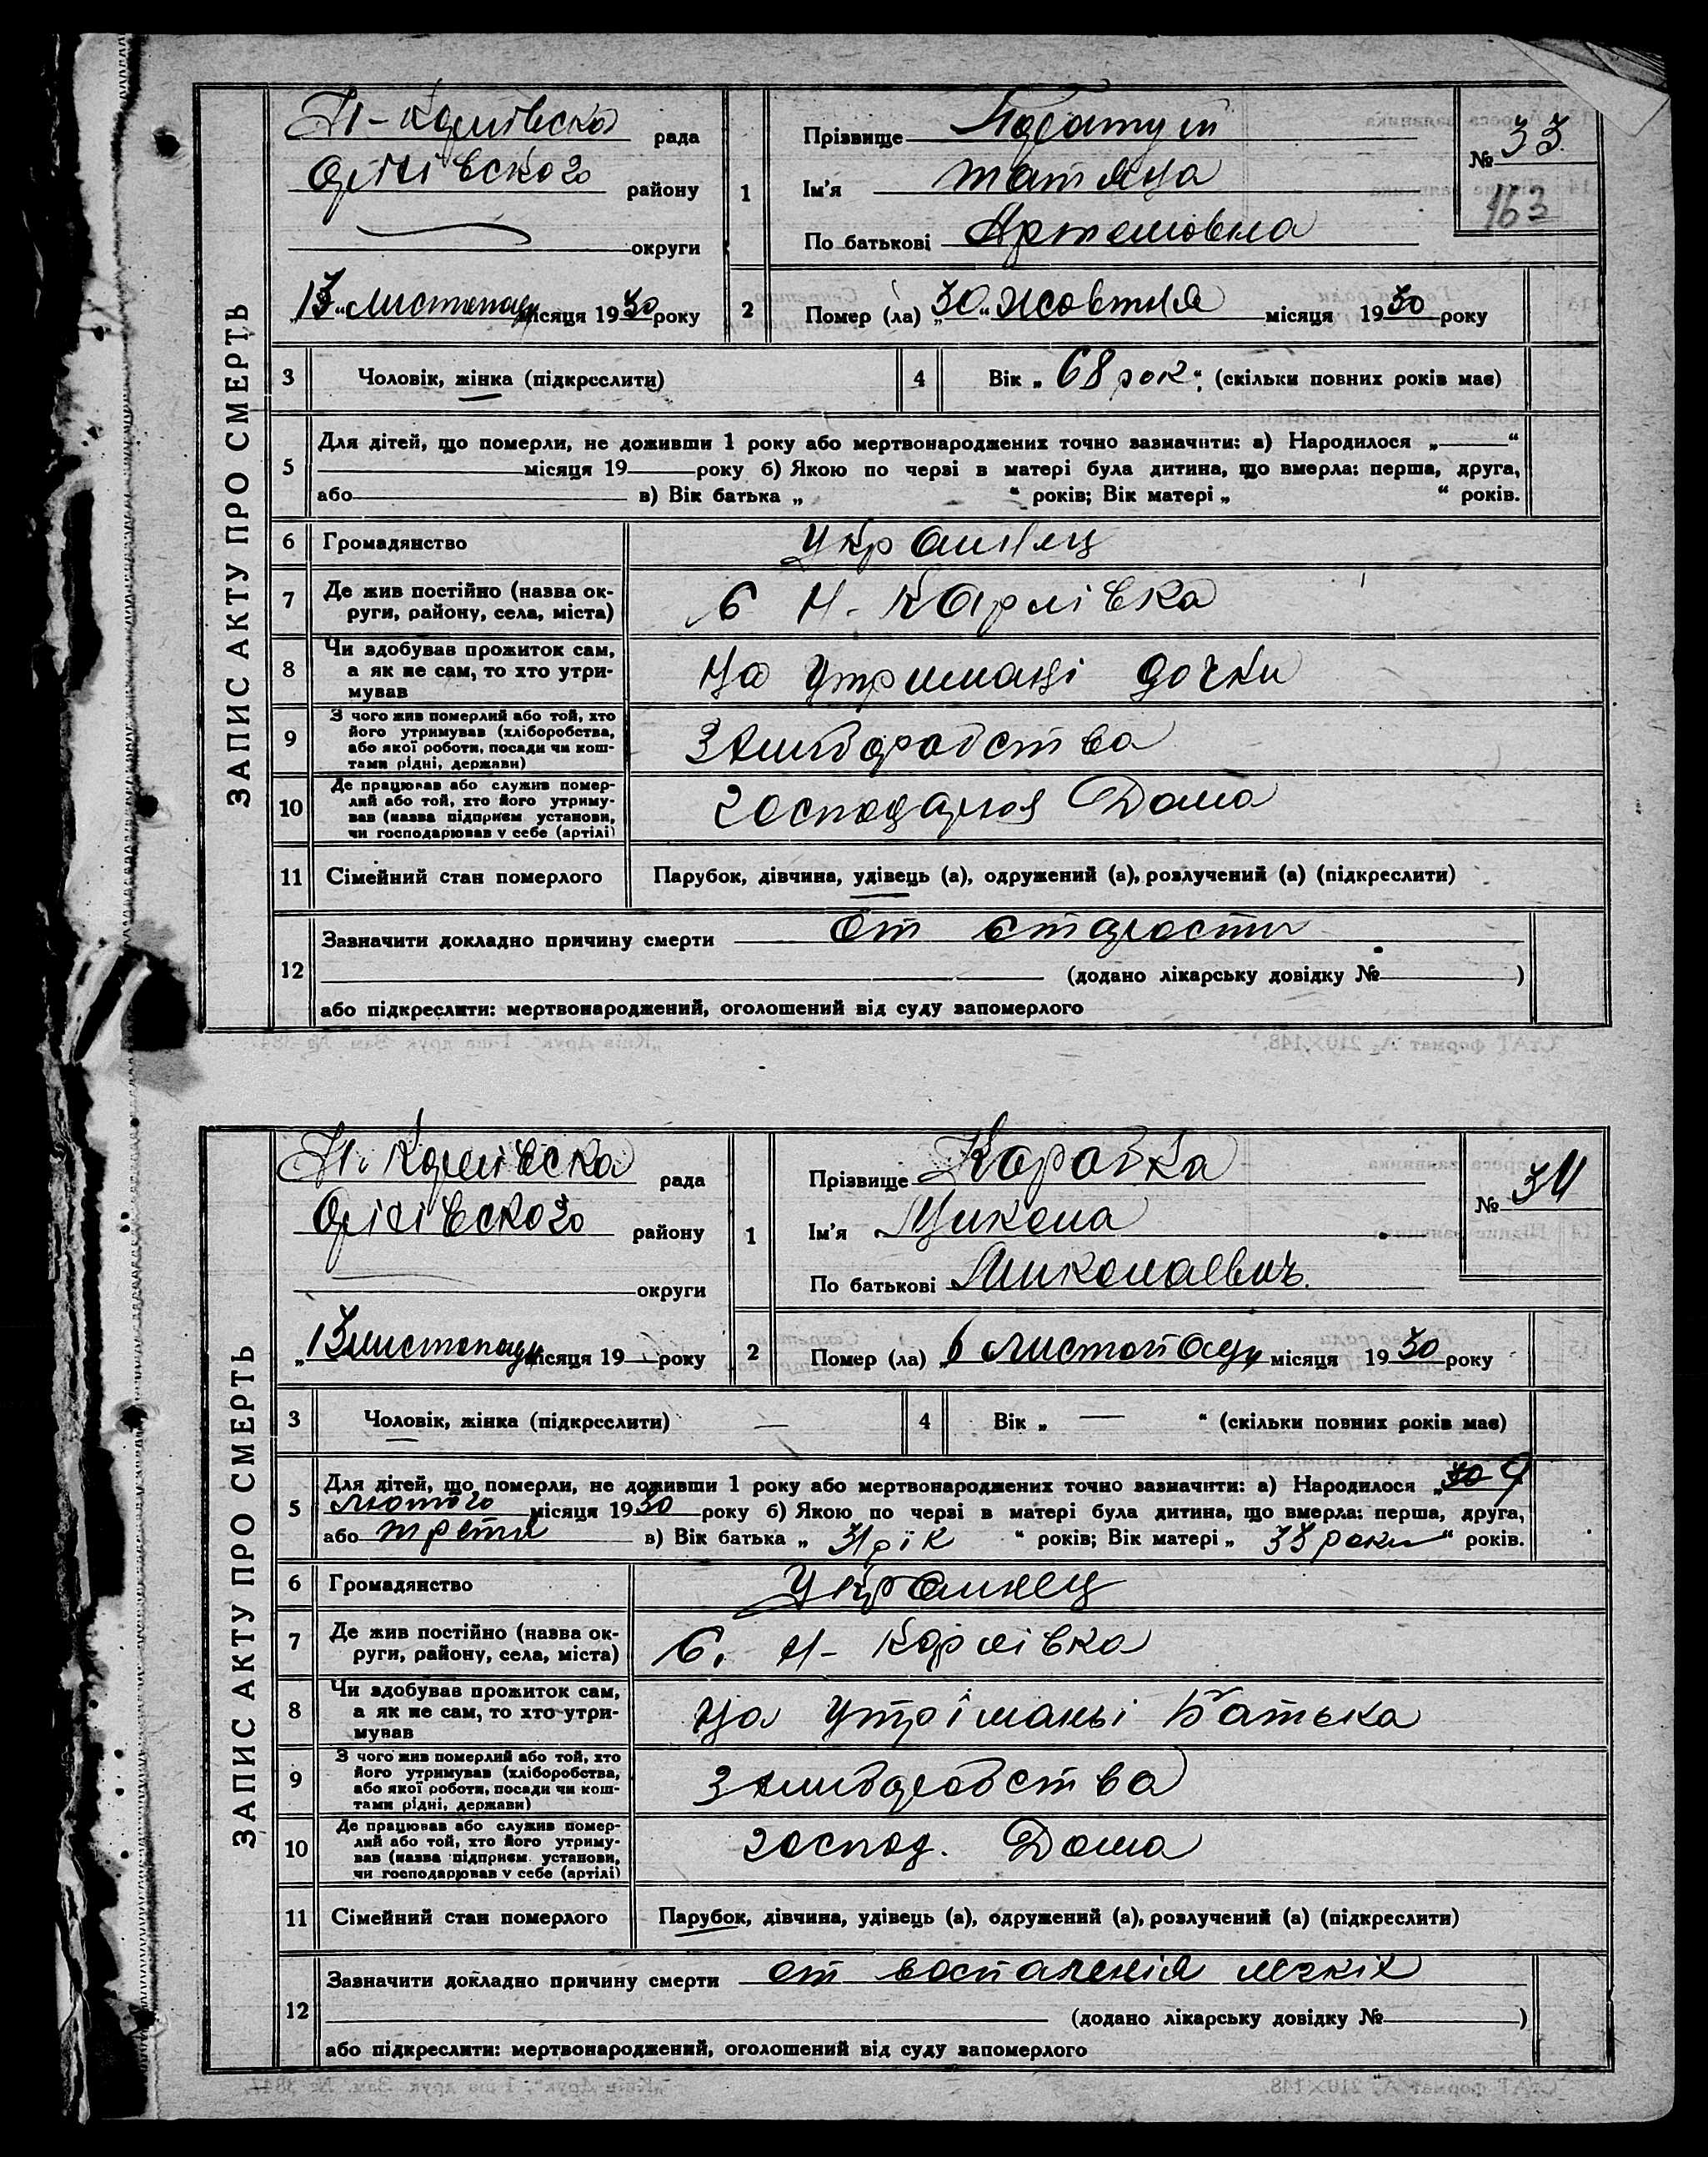 ЗАПИС АКТУ ПРО СМЕРТЬ
Н-Карлівска рада
Оріхівского району
округи
"13" листопаду місяця 1930 року
1
Прізвище
Ім'я Татяна
По батькові Артемовна
№ 33
163
2
Помер (ла) "30" жовтня місяця 1930 року
3 Чоловік, жінка (підкреслити)
4 Вік „ 68 рок “ (скільки повних років має)
5
Для дітей, що померли, не доживши 1 року або мертвонароджених точно зазначити: а) Народилося „ “
місяця 19 року б) Якою по черзі в матері була дитина, що вмерла: перша, друга,
або в) Вік батька „ “ років; Вік матері „ “ років.
6 Громадянство Украинец
7 Де жив постійно (назва ок-
руги, району, села, міста) С Н-Карлівка
8 Чи здобував прожиток сам,
а як не сам, то хто утри-
мував На утримані дочки
9 З чого жив померлий або той, хто
його утримував (хліборобства,
або якої роботи, посади чи кош-
тами рідні, держави) З хлиборобства
10 Де працював або служив помер-
лий або той, хто його утриму-
вав (назва підприєм установи,
чи господарював у себе (артілі) Дома
11 Сімейний стан померлого Парубок, дівчина, удівець (а), одружений (а), розлучений (а) (підкреслити)
12
Зазначити докладно причину смерти От старости
(додано лікарську довідку № )
або підкреслити: мертвонароджений, оголошений від суду запомерлого
ЗАПИС АКТУ ПРО СМЕРТЬ
Н. Карлівска рада
Оріхівского району
округи
„13 листопаду місяця 19 року
1
Прізвище Коробка
Ім'я Микола
По батькові Миколаевич
№ 34
2
Помер (ла) „6 листопаду місяця 1930 року
3 Чоловік, жінка (підкреслити) —
4 Вік „ — “ (скільки повних років має)
5
Для дітей, що померли, не доживши 1 року або мертвонароджених точно зазначити: а) Народилося „
лютого місяця 1930 року б) Якою по черзі в матері була дитина, що вмерла: перша, друга,
або трети в) Вік батька „ “ років; Вік матері „ “ років.
6 Громадянство Украинец
7 Де жив постійно (назва ок-
руги, району, села, міста) С. Н-Карлівка
8 Чи здобував прожиток сам,
а як не сам, то хто утри-
мував На утріманьі батька
9 З чого жив померлий або той, хто
його утримував (хліборобства,
або якої роботи, посади чи кош-
тами рідні, держави) З хлиборобства
10 Де працював або служив помер-
лий або той, хто його утриму-
вав (назва підприєм. установи,
чи господарював у себе (артілі) господ. Дома
11 Сімейний стан померлого Парубок, дівчина, удівець (а), одружений (а), розлучений (а) (підкреслити)
12
Зазначити докладно причину смерти от воспаленія легкіх
(додано лікарську довідку № )
або підкреслити: мертвонароджений, оголошений від суду запомерлого